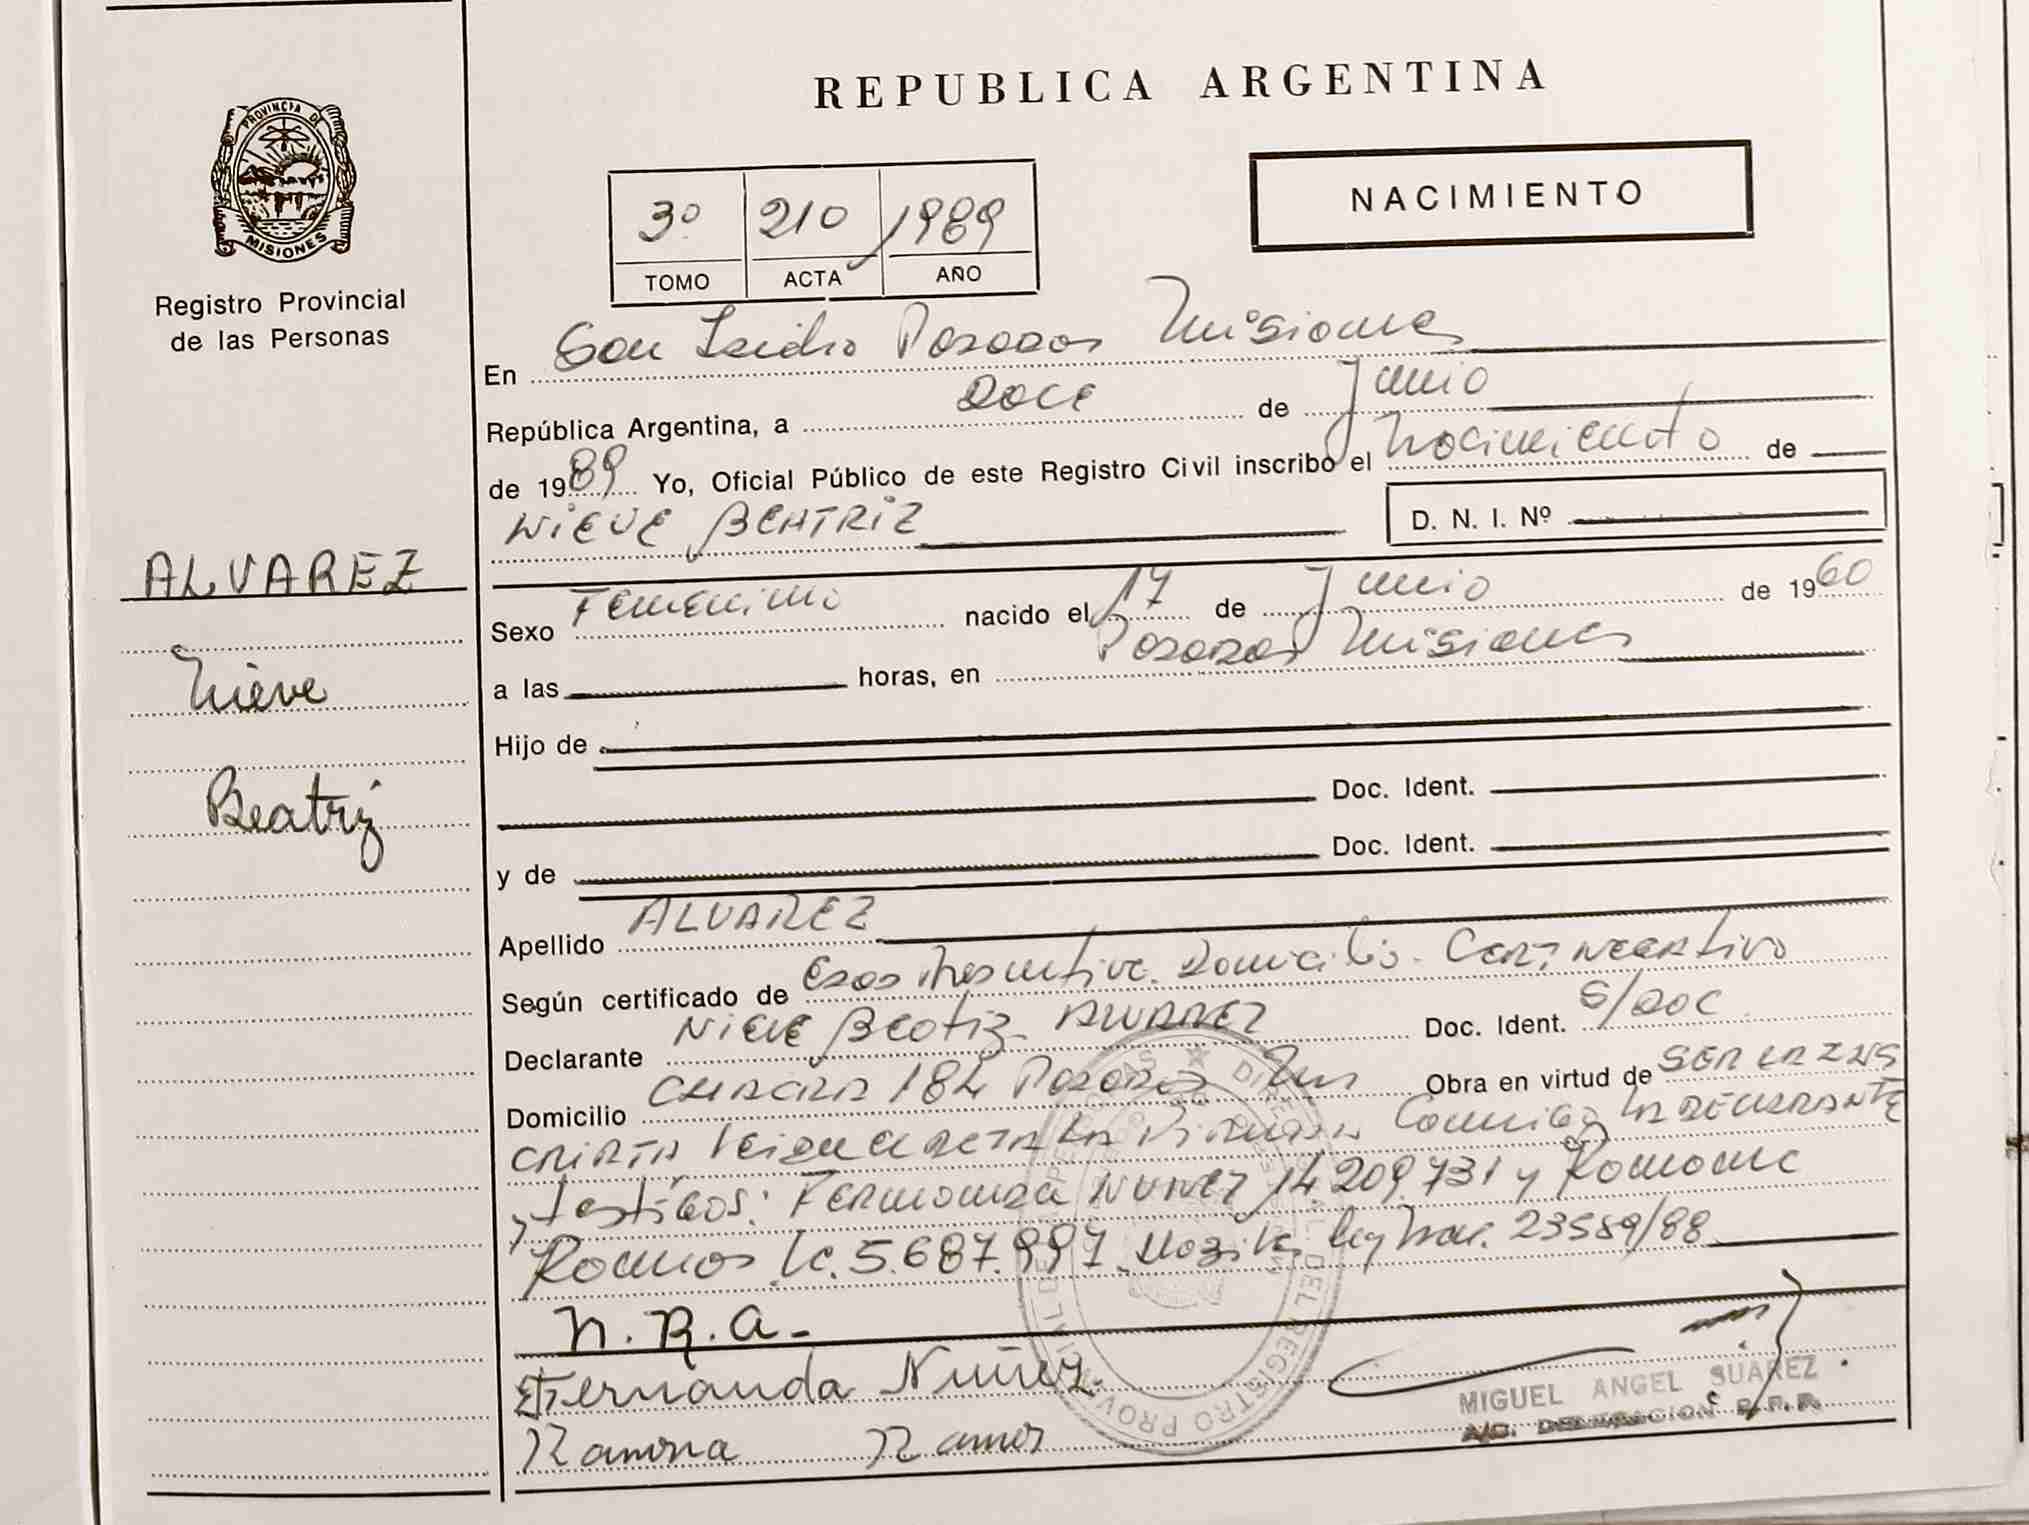 REPUBLICA ARGENTINA
PROVINCIA DE
MISIONES
Registro Provincial
de las Personas
NACIMIENTO
3º 210 1989
TOMO ACTA AÑO
En San Isidro Posadas Misiones
República Argentina, a Doce de Junio
de 1989 Yo, Oficial Público de este Registro Civil inscribo el Nacimiento de
NIEVE BEATRIZ
D. N. I. Nº
ALVAREZ
Nieve
Beatriz
Sexo Femenino nacido el 17 de Junio de 1960
a las horas, en Posadas Misiones
Hijo de
Doc. Ident.
y de Doc. Ident.
Apellido ALVAREZ
Según certificado de Domicilio. Cert. Negativo
Declarante NIEVE Beatiz ALVAREZ Doc. Ident. S/DOC
Domicilio CHACRA 184 Posadas Mns Obra en virtud de SER LA INS
CRIPTA Leida el ACTA LA FIRMAN Conmigo LA DECLARANTE
y testigos: Fernanda NUÑEZ 14.209.731 y Romona
Ramos Lc. 5.687.997. Ley Nac. 23589/88
N.B.A.
Fernanda Nuñez.
Ramona Ramos
MIGUEL ANGEL SUAREZ
A/C. DELEGACION R.P.P.